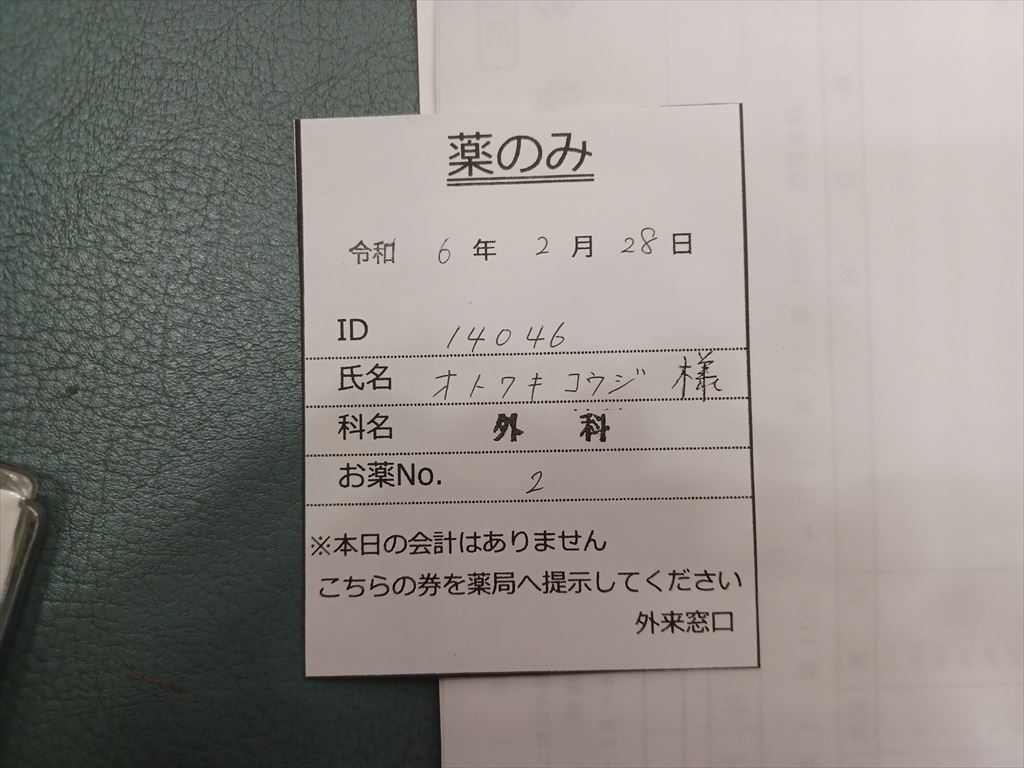 薬のみ
令和 6 年 2 月 28 日
ID 14046
氏名 オトワキ コウジ 様
科名 外 科
お薬No. 2
※本日の会計はありません
こちらの券を薬局へ提示してください
外来窓口